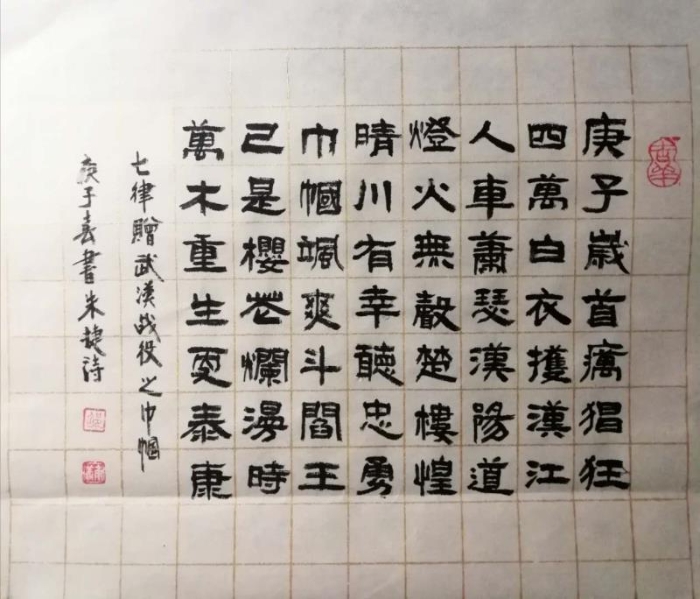 庚子歲首癘猖狂
四萬白衣擭漢江
人車蕭瑟漢陽道
燈火無聲楚樓惶
晴川有幸聽忠勇
巾幗颯爽斗閻王
已是櫻花爛漫時
萬木重生更泰康
七律贈武漢战役之巾幗
庚子春書朱捷诗